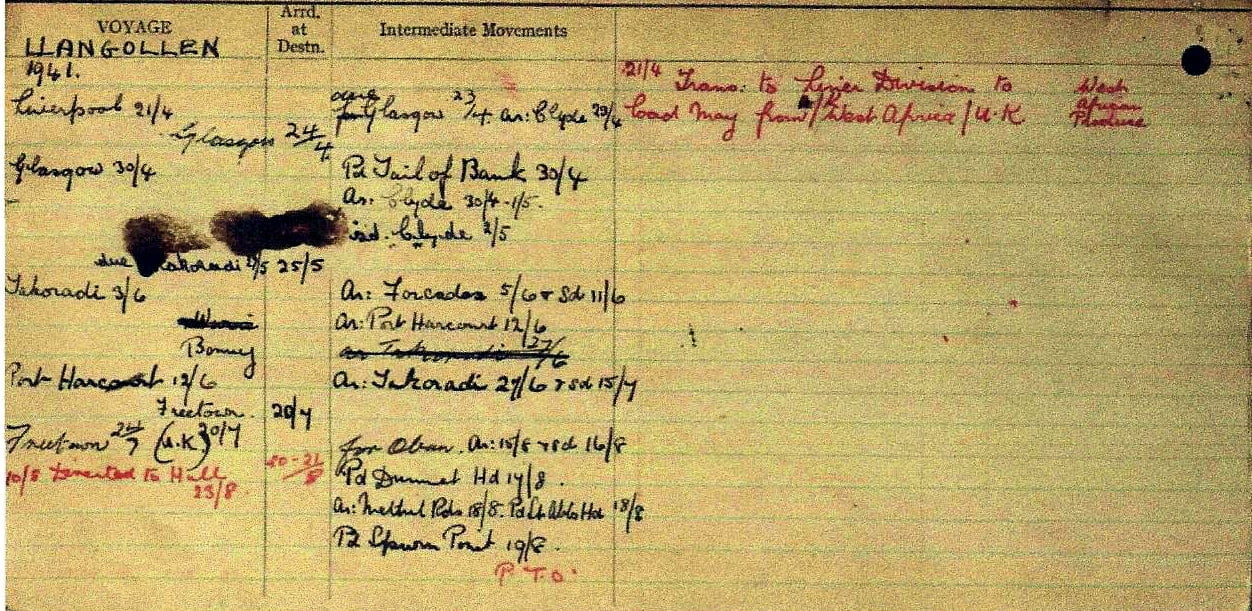 VOYAGE
Arrd. at Destn.
Intermediate Movements
LLANGOLLEN
1941.
21/4 Trans. to Liner Division to
load May from West Africa / U.K
West African Produce
Liverpool 21/4
Glasgow 23/4 Ar: Clyde 23/4
Glasgow 24/4
Glasgow 30/4
Pd Tail of Bank 30/4
Ar: Clyde 30/4-1/5.
Clyde 2/5
due Takoradi 25/5
Takoradi 3/6
Ar: Forcados 5/6 & Sd 11/6
Warri
Ar: Port Harcourt 12/6
Bonny
ar Takoradi 27/6
Port Harcourt 12/6
Ar: Takoradi 27/6 & sd 15/7
Freetown. 20/7
Freetown (U.K) 30/7
for Oban. Ar: 15/8 & sd 16/8
10/8 Diverted to Hull
23/8.
20-21/8
Pd Dunnet Hd 17/8.
Ar: Methil Rds 18/8. Pd St Abbs Hd 18/8
Pd Spurn Point 19/8.
P.T.O.